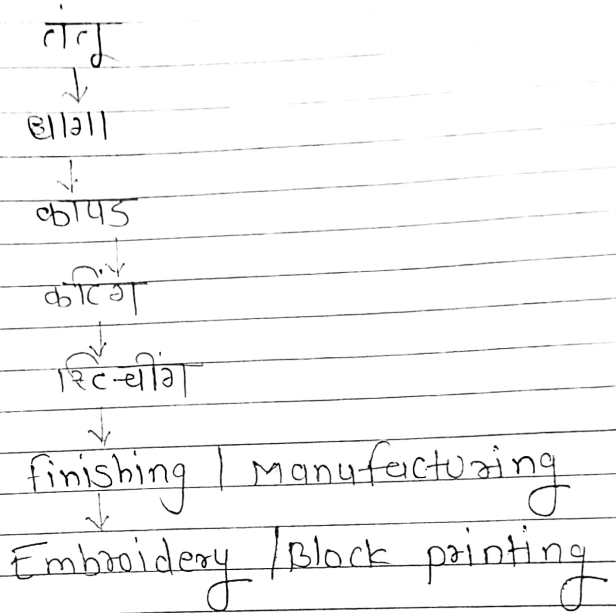 तंतू
↓
धागा
↓
कापड
↓
कटिंग
↓
स्टिचींग
↓
Finishing | Manufacturing
↓
Embroidery / Block printing